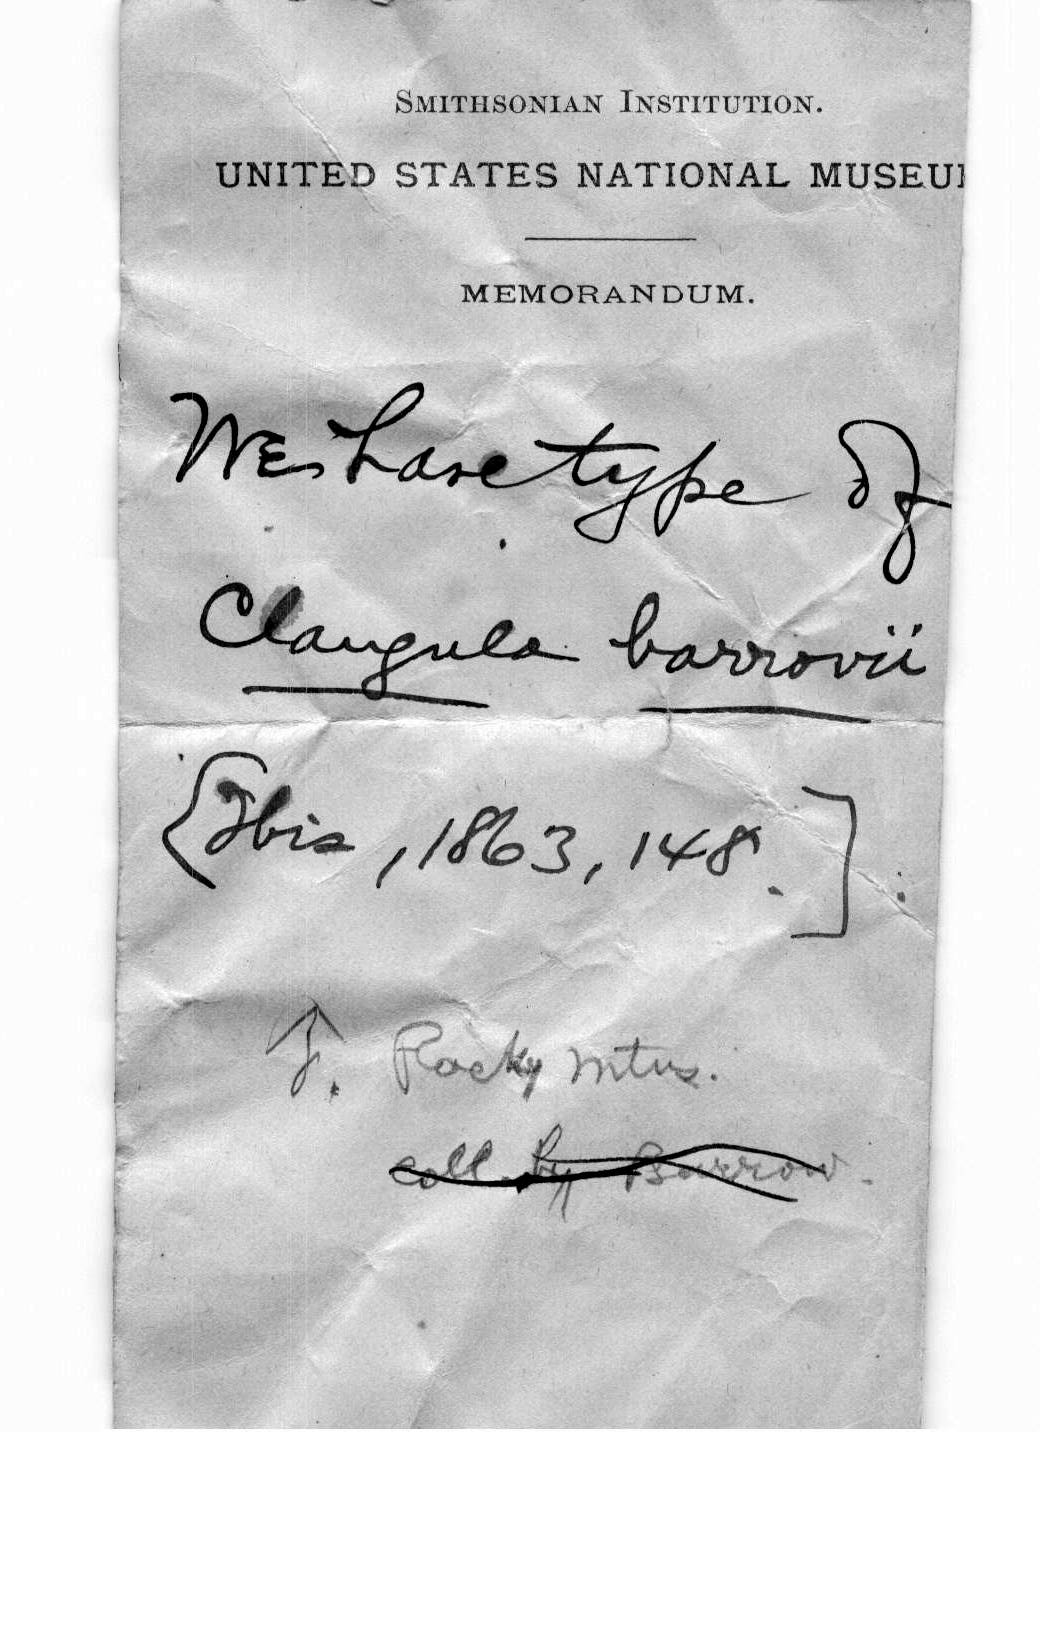 SMITHSONIAN INSTITUTION.
UNITED STATES NATIONAL MUSEU
MEMORANDUM.
We have type of
Clangula barrovii
[Ibis, 1863, 148.]
Rocky Mtns.
coll. by Barrow.